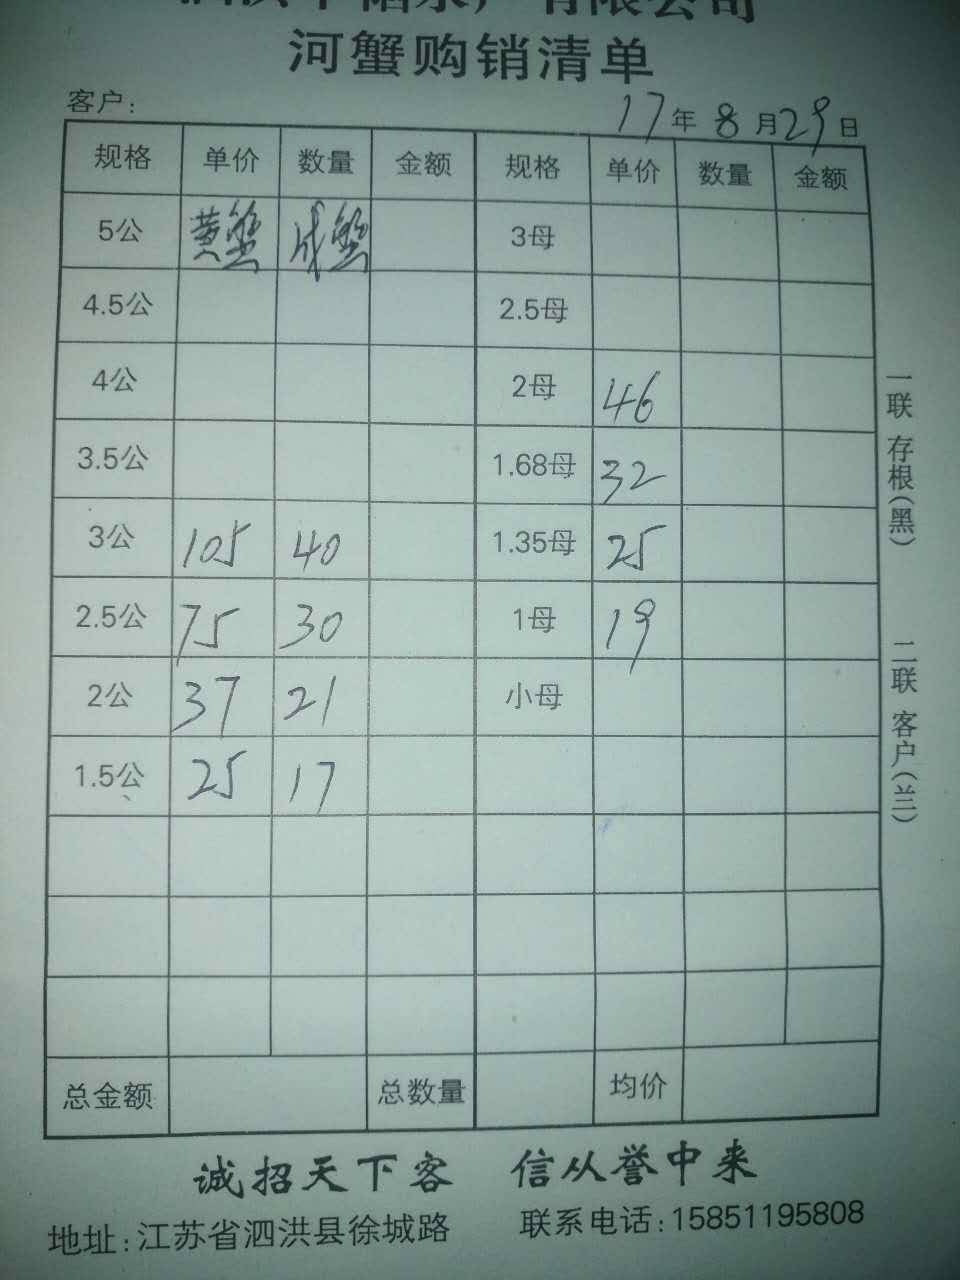 有限公司
河蟹购销清单
客户: 17年8月29日
规格 单价 数量 金额 规格 单价 数量 金额
5公 黄蟹 成蟹 3母
4.5公 2.5母
4公 2母 46
3.5公 1.68母 32
3公 105 40 1.35母 25
2.5公 75 30 1母 19
2公 37 21 小母
1.5公 25 17
总金额 总数量 均价
一联 存根(黑)
二联 客户(兰)
诚招天下客 信从誉中来
地址:江苏省泗洪县徐城路 联系电话:15851195808